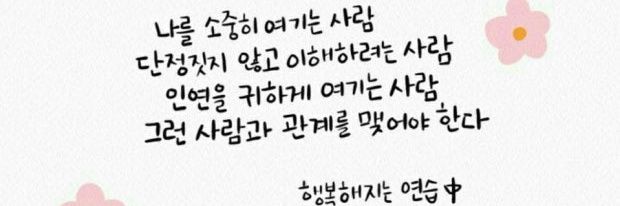 나를 소중히 여기는 사람
단정짓지 않고 이해하려는 사람
인연을 귀하게 여기는 사람
그런 사람과 관계를 맺어야 한다
행복해지는 연습中